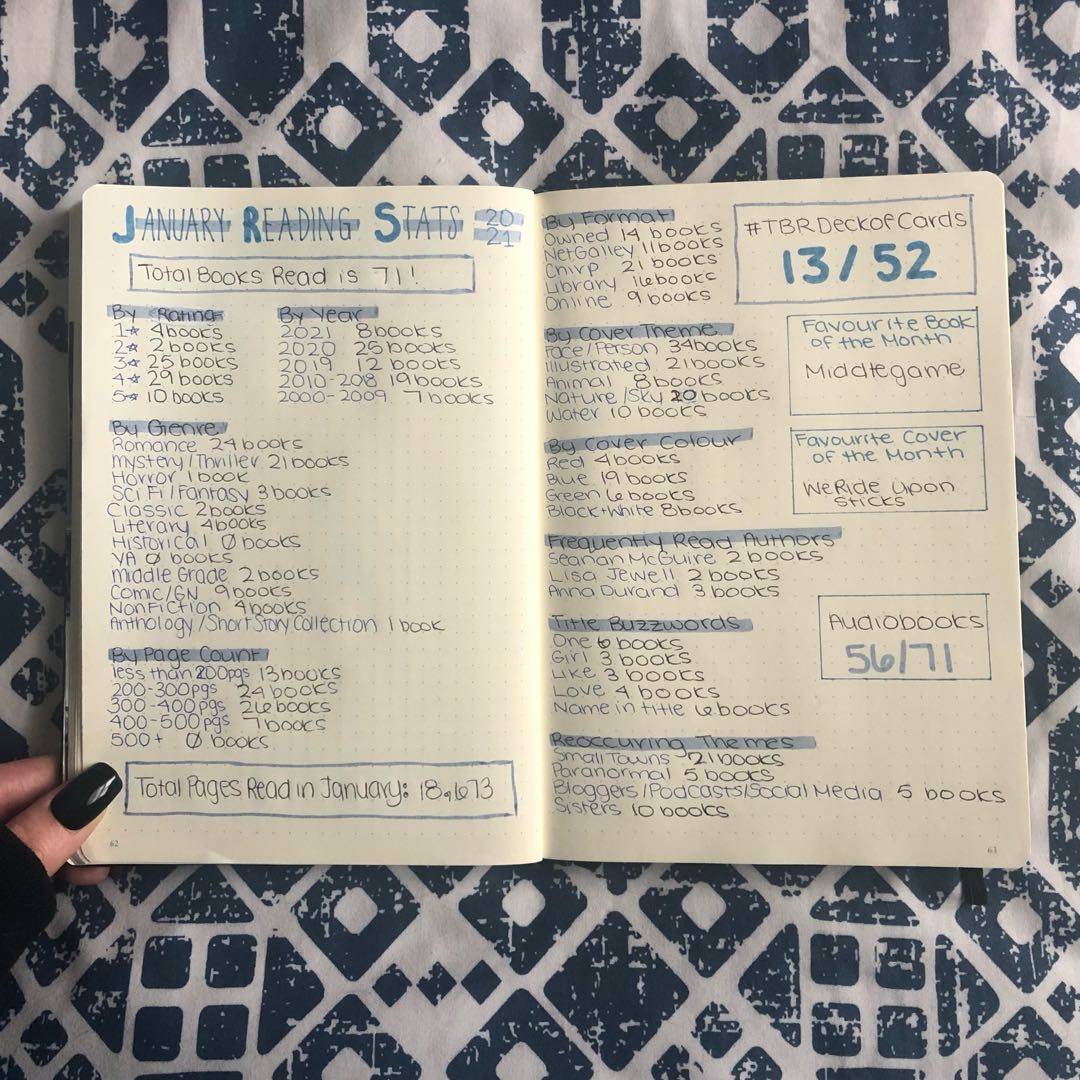 January Reading Stats 20
21
Total Books Read is 71!
By Rating
1☆ 4 books
2☆ 2 books
3☆ 25 books
4☆ 29 books
5☆ 10 books
By Year
2021 8 books
2020 25 books
2019 12 books
2010-208 19 books
2000-2009 7 books
By Genre
Romance 24 books
Mystery/Thriller 21 books
Horror 1 book
Sci Fi/Fantasy 3 books
Classic 2 books
Literary 4 books
Historical 0 books
YA 0 books
Middle Grade 2 books
Comic/GN 9 books
NonFiction 4 books
Anthology/Short Story Collection 1 book
By Page Count
less than 200pgs 13 books
200-300pgs 24 books
300-400pgs 26 books
400-500pgs 7 books
500+ 0 books
Total Pages Read in January: 18,673
62
By Format
Owned 14 books
NetGalley 11 books
Chirp 21 books
Library 16 books
Online 9 books
#TBRDeckofCards
13/52
By Cover Theme
Face/Person 34 books
Illustrated 21 books
Animal 8 books
Nature/Sky 20 books
Water 10 books
Favourite Book
of the Month
Middlegame
By Cover Colour
Red 4 books
Blue 19 books
Green 6 books
Black+White 8 books
Favourite Cover
of the Month
We Ride Upon
Sticks
Frequently Read Authors
Seanan McGuire 2 books
Lisa Jewell 2 books
Anna Durand 3 books
Title Buzzwords
One 6 books
Girl 3 books
Like 3 books
Love 4 books
Name in title 6 books
Audiobooks
56/71
Reoccuring Themes
Small Towns 21 books
Paranormal 5 books
Bloggers/Podcasts/Social Media 5 books
Sisters 10 books
63